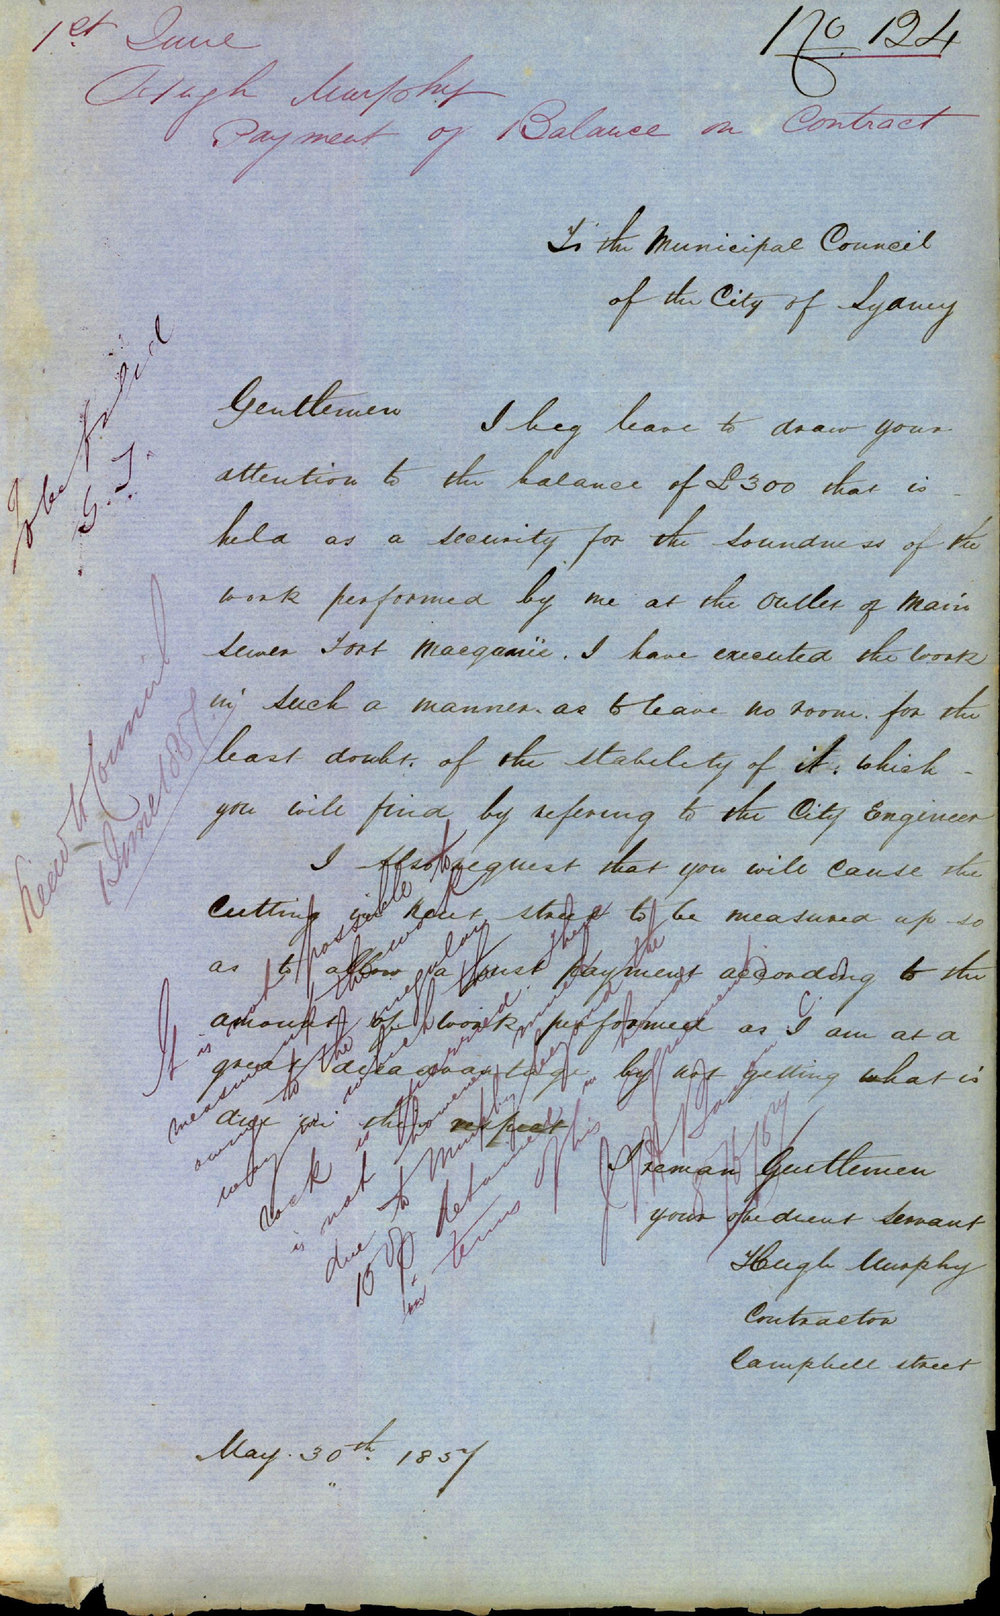 1st June
No. 124
Hugh Murphy
Payment of Balance on Contract
To the Municipal Council
of the City of Sydney
Gentlemen
I beg leave to draw your
attention to the balance of £300 that is
held as a security for the soundness of the
work performed by me at the outlet of Main
sewer Fort Macquarie. I have executed the work
in such a manner as to leave no room for the
least doubt. of the stability of it. which
you will find by refering to the City Engineer
I Also request that you will cause the
Cutting in Kent street to be measured up so
as to allow a just payment according to the
amount of work performed as I am at a
great disadvantage by not getting what is
due in this respect
I reman Gentlemen
your obedient servant
Hugh Murphy
Contractor
Campbell street
May. 30th 1857
To be
G. T.
to Council
1 June 1857
It is not possible to
measure up the work
owing to the irregular
way in which the
rock is
is not however
due to Murphy beyond the
15 retained in hand
in terms of his agreement